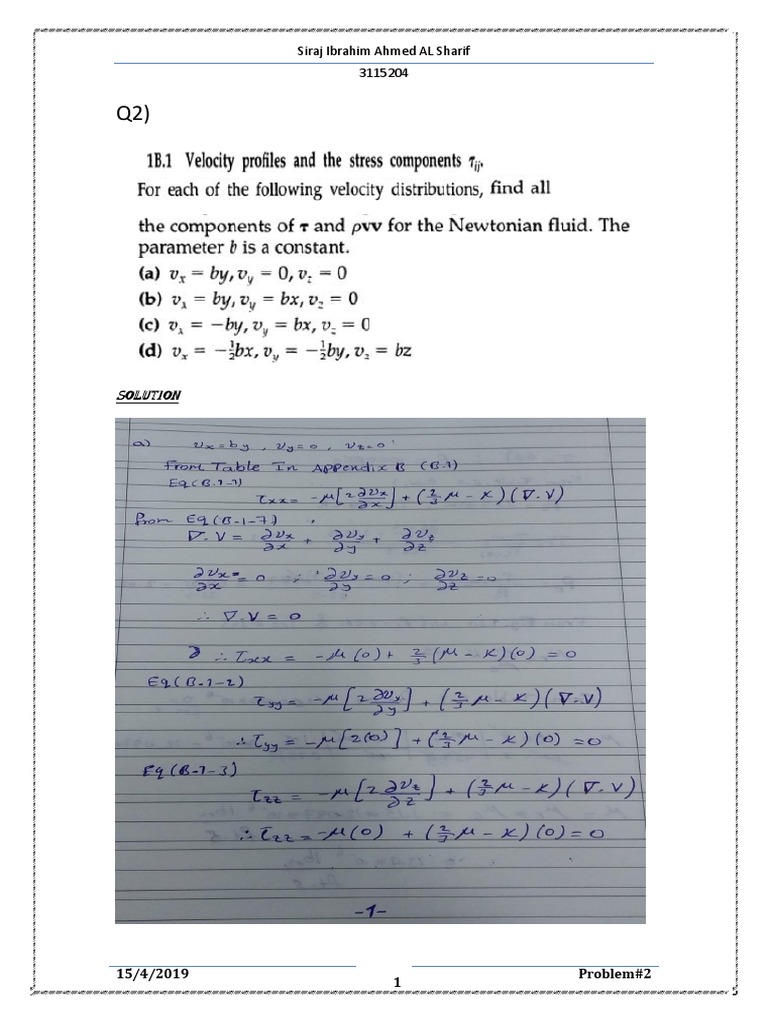 Siraj Ibrahim Ahmed AL Sharif
3115204
Q2)
1B.1 Velocity profiles and the stress components τij.
For each of the following velocity distributions, find all
the components of τ and ρvv for the Newtonian fluid. The
parameter b is a constant.
(a) vx = by, vy = 0, vz = 0
(b) vx = by, vy = bx, vz = 0
(c) vx = −by, vy = bx, vz = 0
(d) vx = −½bx, vy = −½by, vz = bz
SOLUTION
a) vx = by , vy = 0 , vz = 0
From Table In Appendix B (B.1)
Eq(B-1-1)
τxx = −μ[2 ∂vx/∂x] + (2/3 μ − κ)(∇.V)
from Eq(B-1-7)
∇.V = ∂vx/∂x + ∂vy/∂y + ∂vz/∂z
∂vx/∂x = 0 ; ∂vy/∂y = 0 ; ∂vz/∂z = 0
∴ ∇.V = 0
∴ τxx = −μ(0) + 2/3(μ − κ)(0) = 0
Eq(B-1-2)
τyy = −μ[2 ∂vy/∂y] + (2/3 μ − κ)(∇.V)
∴ τyy = −μ[2(0)] + (2/3 μ − κ)(0) = 0
Eq(B-1-3)
τzz = −μ[2 ∂vz/∂z] + (2/3 μ − κ)(∇.V)
∴ τzz = −μ(0) + (2/3 μ − κ)(0) = 0
-1-
15/4/2019 Problem#2
1